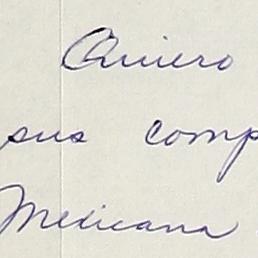 Quiero
sus comp
Mexicana